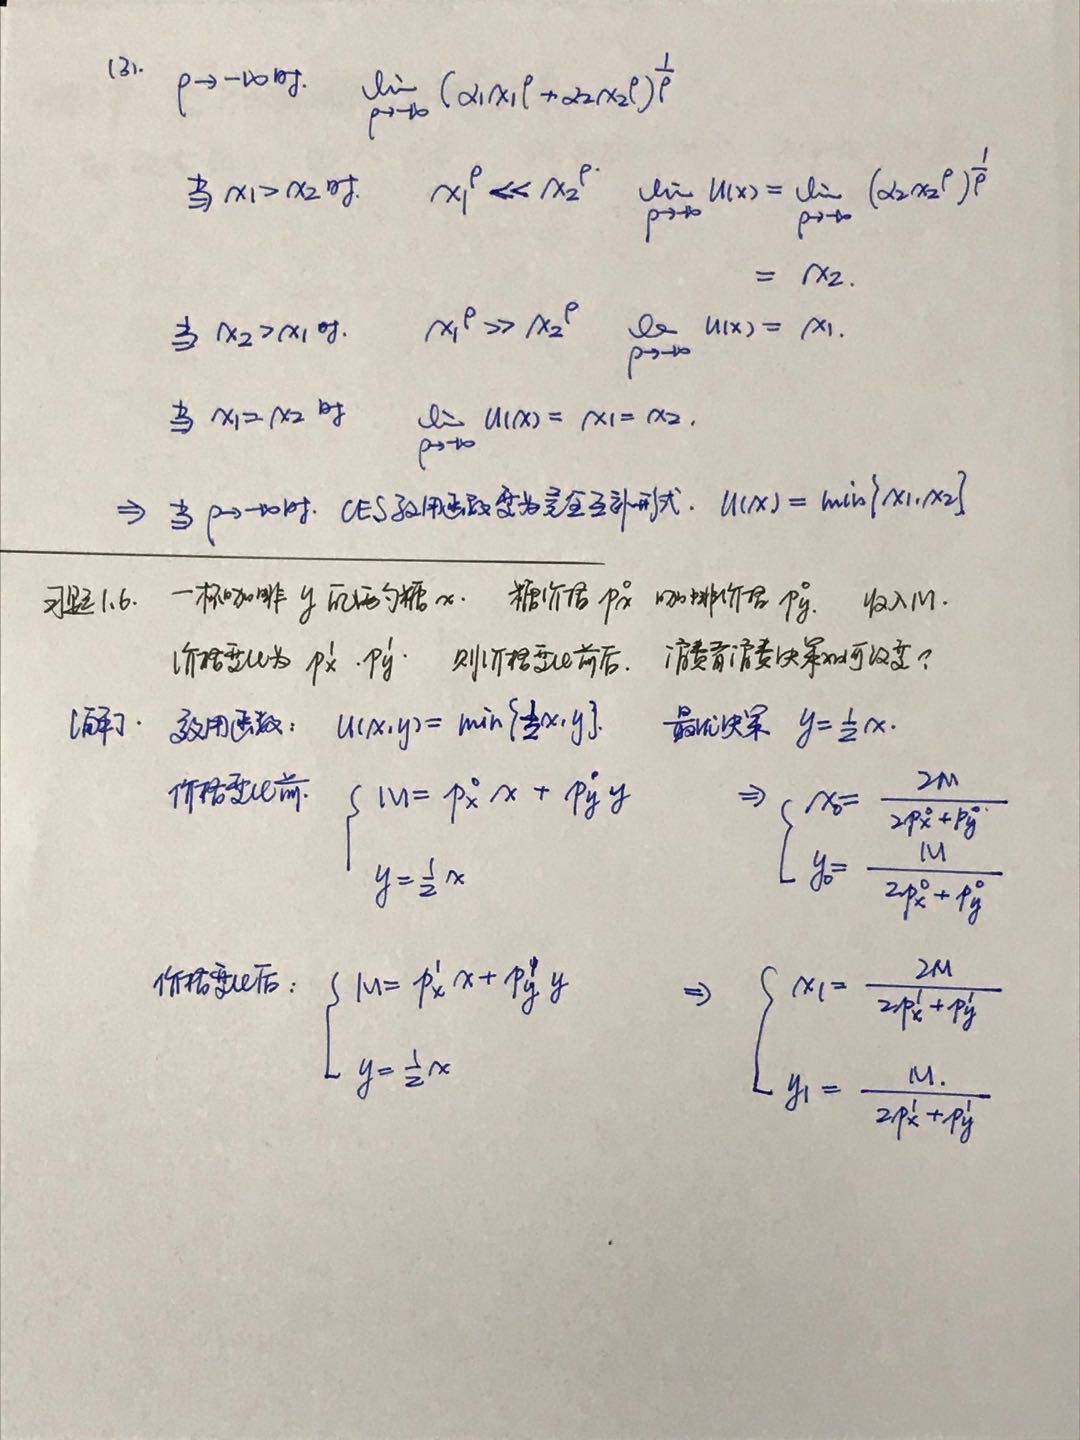 (3). ρ→-∞时. lim ρ→-∞ (α₁x₁^ρ + α₂x₂^ρ)^(1/ρ)
当 x₁>x₂时. x₁^ρ ≪ x₂^ρ. lim ρ→-∞ u(x) = lim ρ→-∞ (α₂x₂^ρ)^(1/ρ)
= x₂.
当 x₂>x₁时. x₁^ρ ≫ x₂^ρ lim ρ→-∞ u(x) = x₁.
当 x₁=x₂时 lim ρ→-∞ u(x) = x₁ = x₂.
⇒ 当 ρ→-∞时. CES效用函数变为完全互补形式. u(x) = min{x₁,x₂}
习题1.6. 一杯咖啡 y 配两勺糖 x. 糖价格 p_x^0 咖啡价格 p_y^0. 收入M.
价格变化为 p_x^1. p_y^1. 则价格变化前后. 消费者消费决策如何改变?
[解]. 效用函数: u(x,y) = min{½x, y}. 最优决策 y=½x.
价格变化前. { M = p_x^0 x + p_y^0 y ⇒ { x₀ = 2M/(2p_x^0 + p_y^0)
y=½x y₀ = M/(2p_x^0 + p_y^0)
价格变化后: { M = p_x^1 x + p_y^1 y ⇒ { x₁ = 2M/(2p_x^1 + p_y^1)
y=½x y₁ = M./(2p_x^1 + p_y^1)